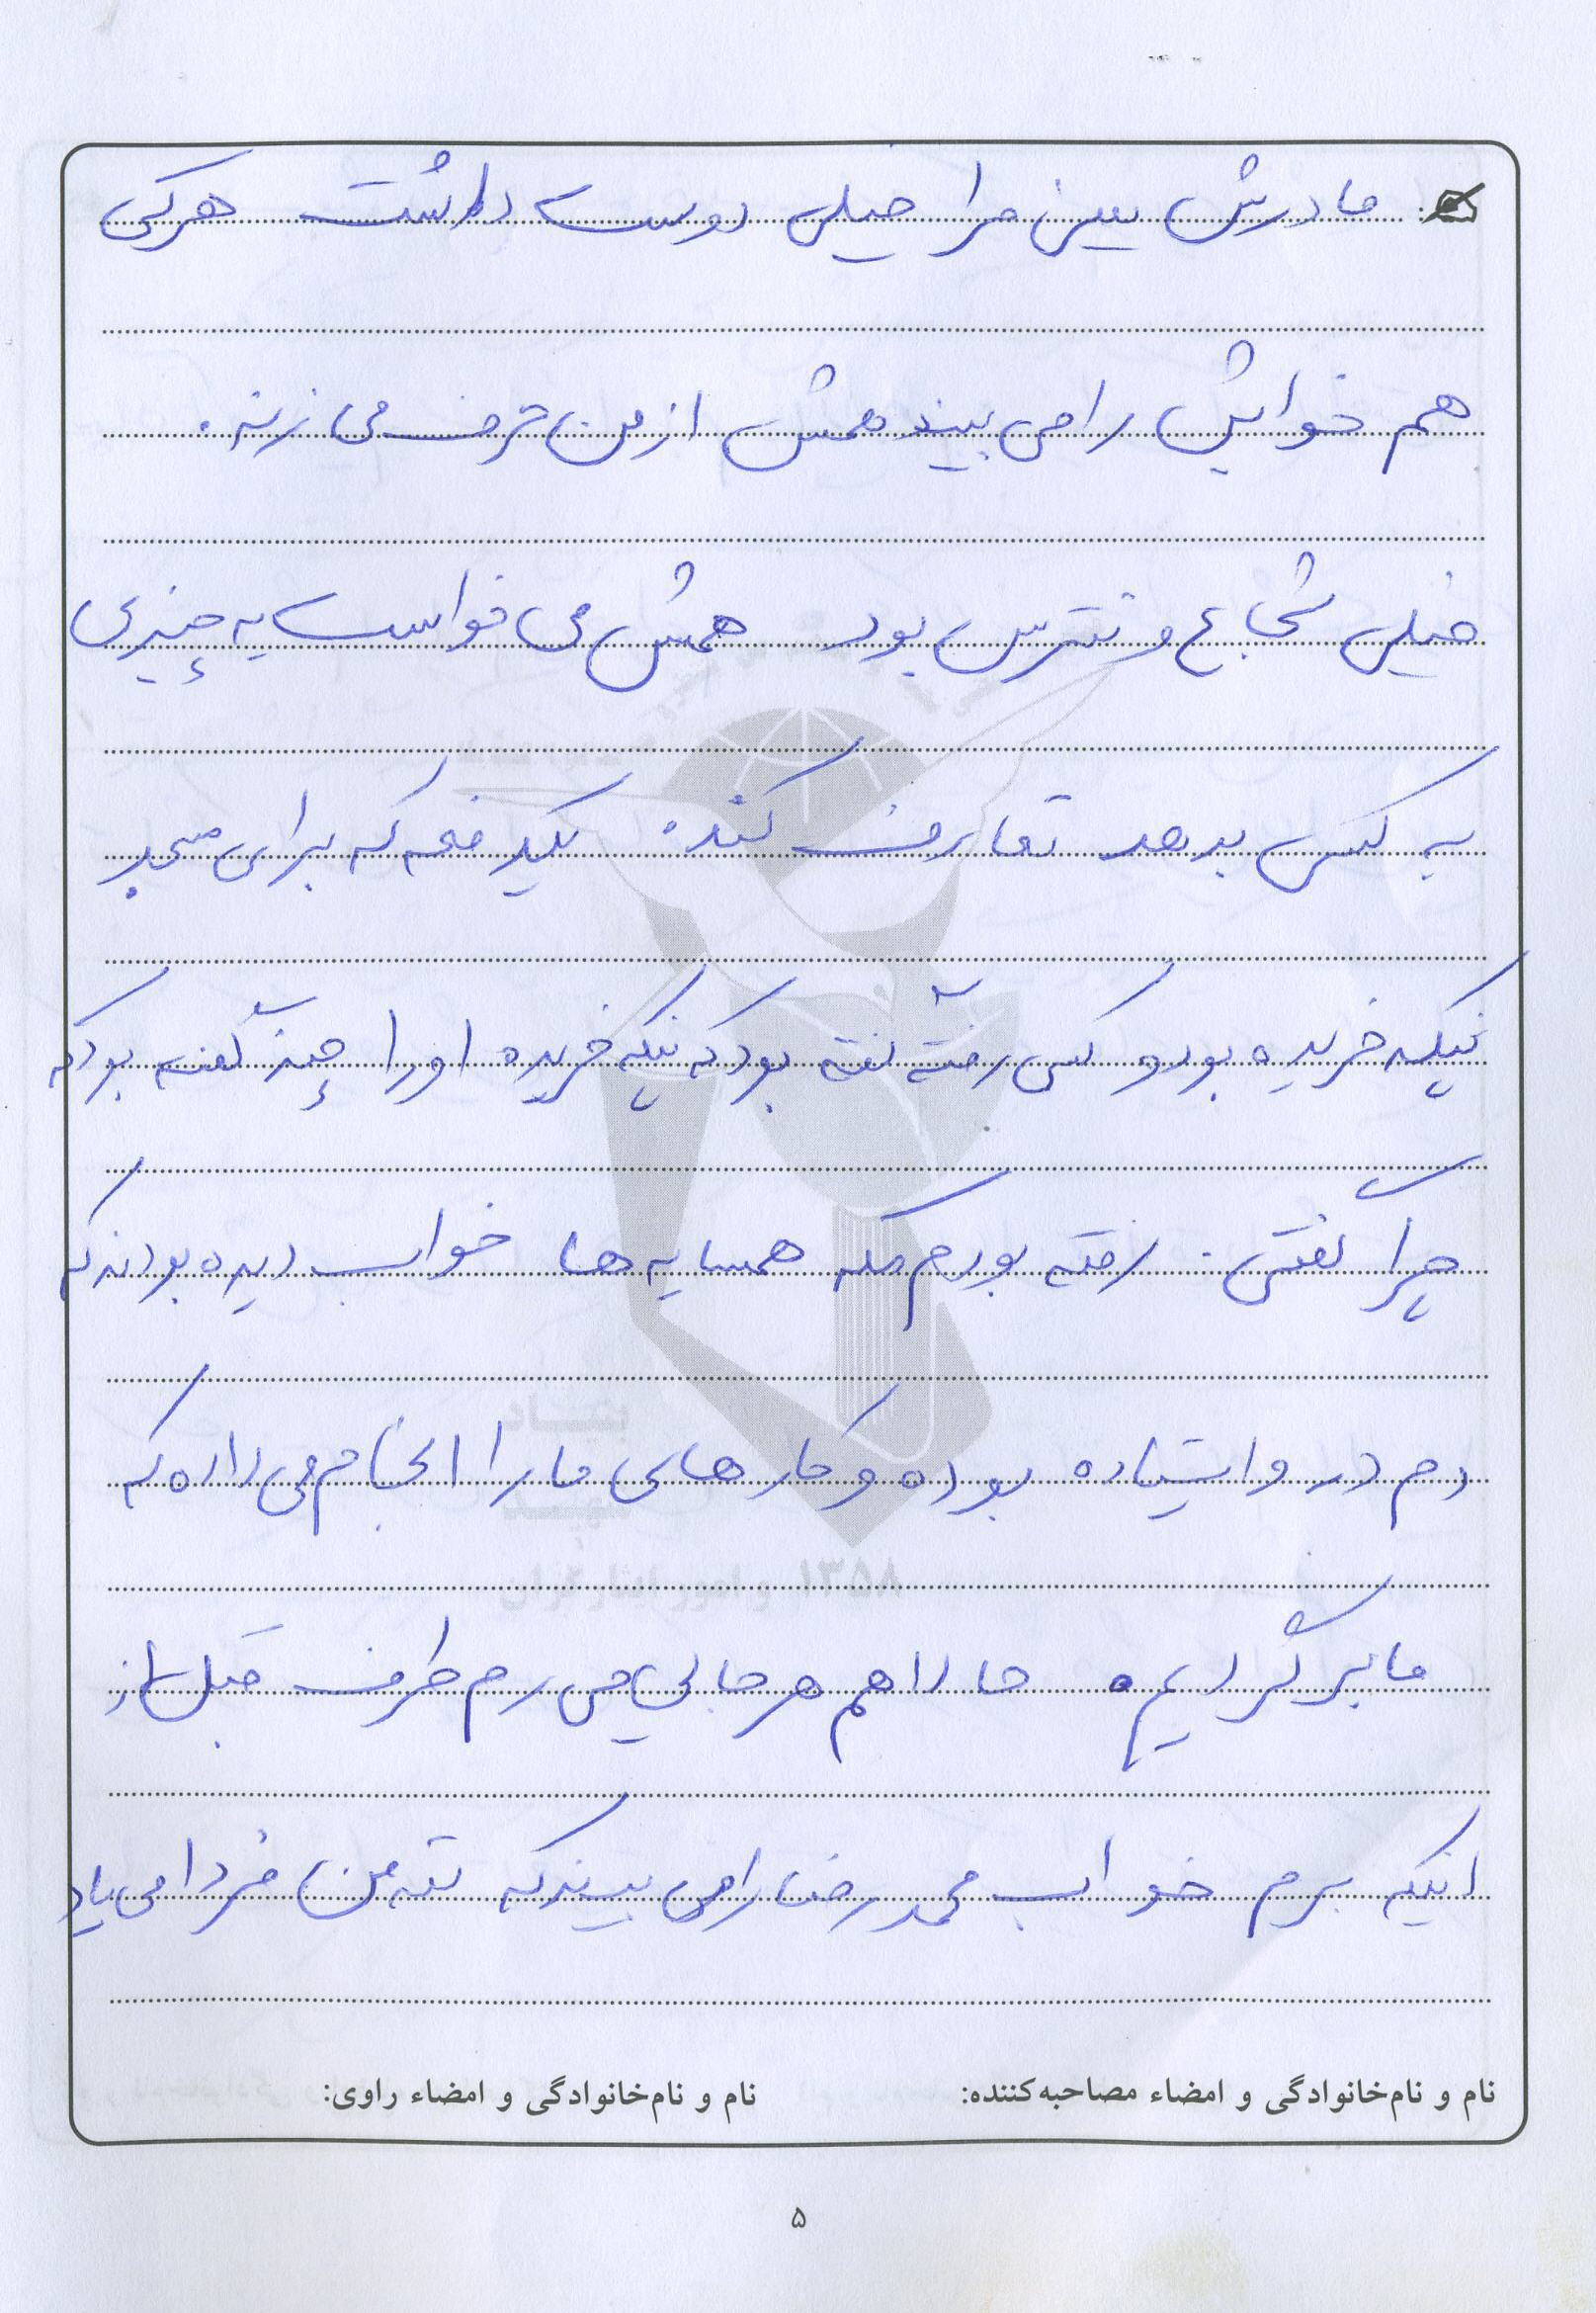 مادرش یعنی مرا خیلی دوست داشت هرکی
هم خوابش را می بیند همش از من حرف می زنه.
خیلی شجاع و نترس بود همش می خواست یه چیزی
به کسی بدهد تعارف کنده. یکدفعه که برای مسجد
پنکه خریده بود و کسی رفته گفته بود که پنکه خریده اورا چنه گفته بود که
چرا گفتی. رفته بودم مکه همسایه ها خواب دیده بودند که
دم در وایستاده بوده و کارهای ما را انجام می داده که
ما برگردیم. حالا هم هرجایی می رم طرف قبل از
اینکه برم خواب محمدرضا را می بیند که ننه من فردا می یاد
نام و نام‌خانوادگی و امضاء مصاحبه‌کننده: نام و نام‌خانوادگی و امضاء راوی:
۵